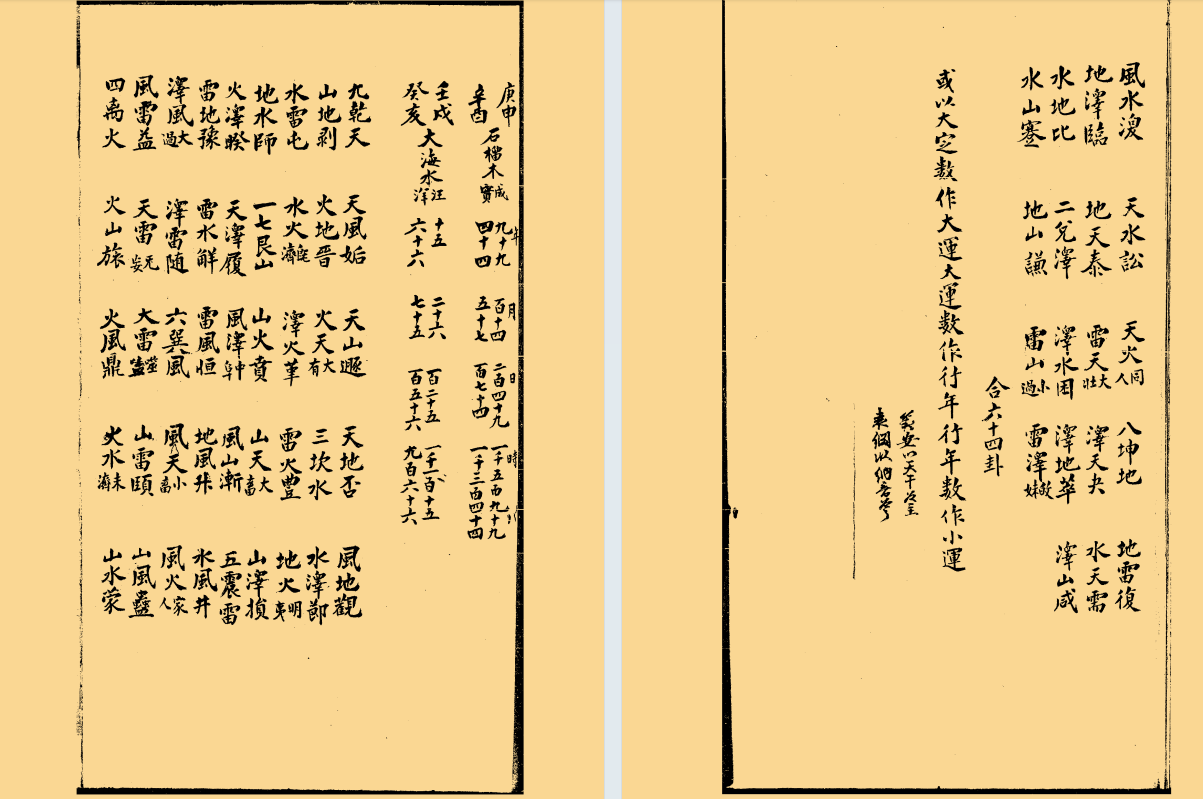 庚申 辛酉 石榴木 成實 年 九十九 四十四 月 百十四 五十七 日 二百四十九 百七十四 時 一千五百九十九 一千三百四十四
壬戌 癸亥 大海水 汪洋 十五 六十六 二十六 七十五 百二十五 百五十六 一千一百十五 九百六十六
九乾天 天風姤 天山遯 天地否 風地觀
山地剥 火地晋 火天大有 三坎水 水澤節
水雷屯 水火既濟 澤火革 雷火豊 地火明夷
地水師 一七艮山 山火賁 山天大畜 山澤損
火澤睽 天澤履 風澤中孚 風山漸 五震雷
雷地豫 雷水解 雷風恒 地風升 水風井
澤風大過 澤雷随 六巽風 風天小畜 風火家人
風雷益 天雷无妄 火雷噬嗑 山雷頤 山風蠱
四离火 火山旅 火風鼎 火水未濟 山水蒙
風水渙 天水訟 天火同人 八坤地 地雷復
地澤臨 地天泰 雷天大壮 澤天夬 水天需
水地比 二兌澤 澤水困 澤地萃 澤山咸
水山蹇 地山謙 雷山小過 雷澤歸妹
合六十四卦
或以大定数作大運大運数作行年行年数作小運